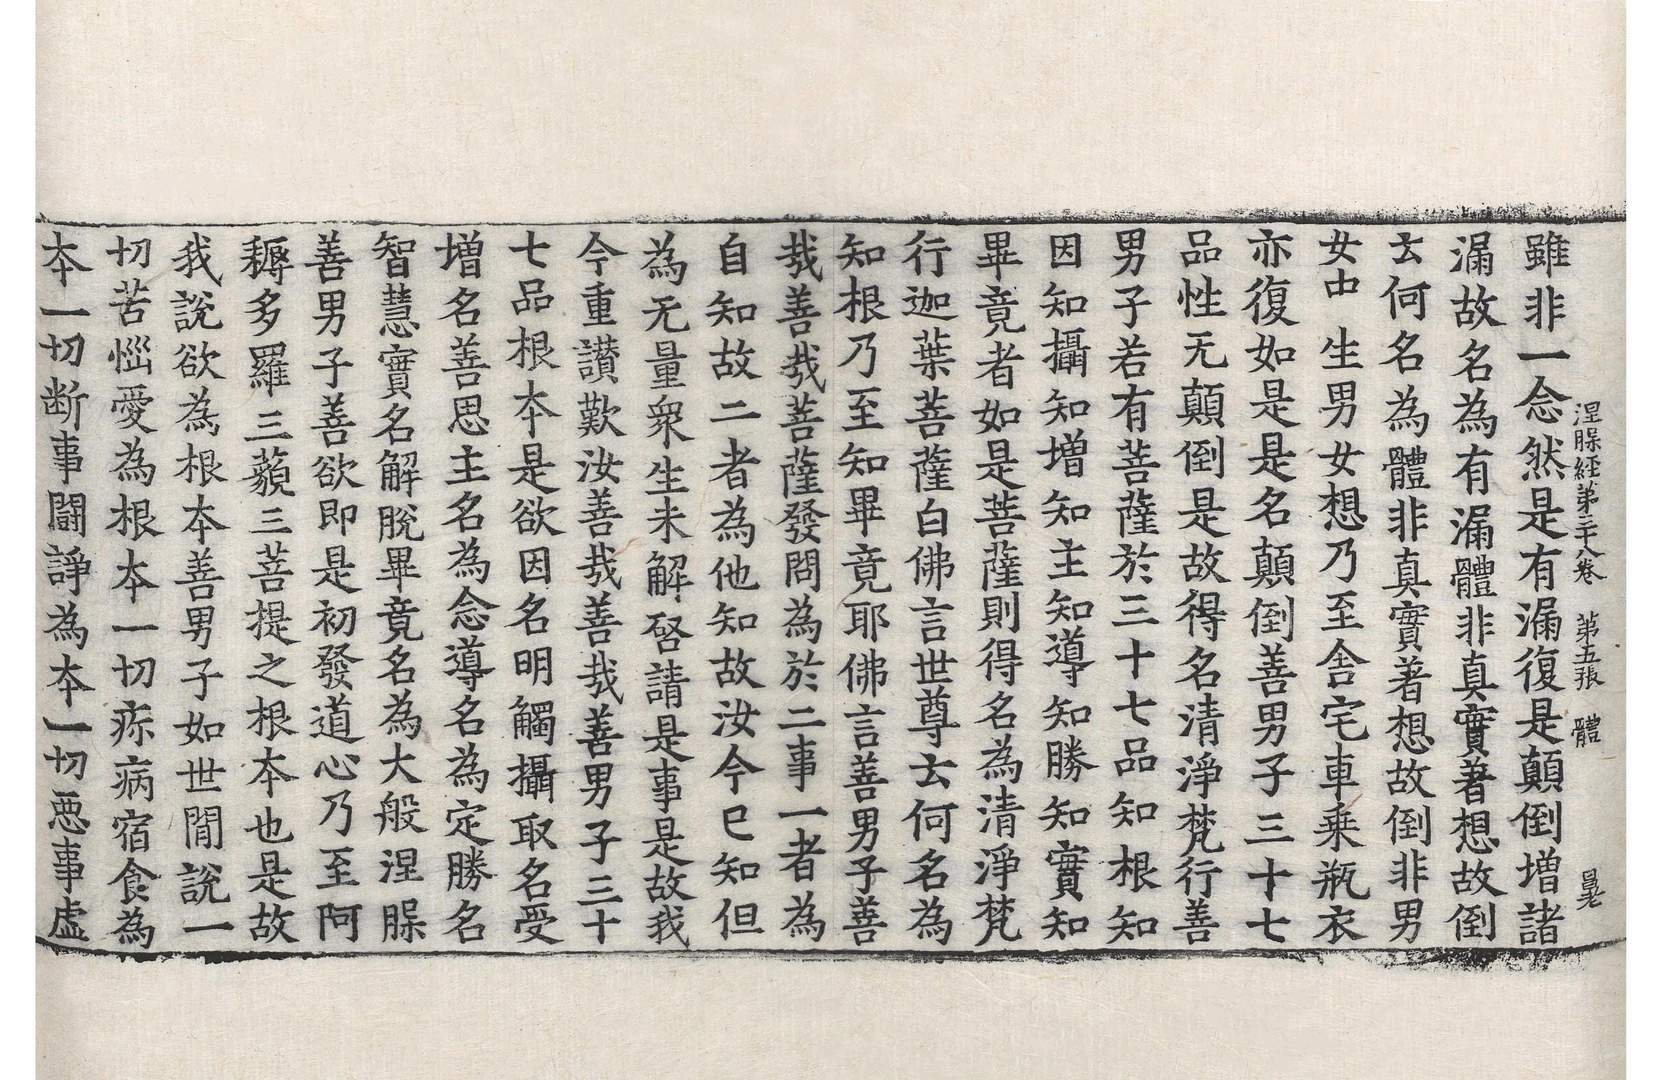 涅槃経第三十八卷　第五張　體
雖非一念然是有漏復是顛倒增諸
漏故名為有漏體非真實著想故倒
云何名為體非真實著想故倒非男
女中生男女想乃至舍宅車乗瓶衣
亦復如是是名顛倒善男子三十七
品性无顛倒是故得名清淨梵行善
男子若有菩薩於三十七品知根知
因知攝知增知主知導知勝知實知
畢竟者如是菩薩則得名為清淨梵
行迦葉菩薩白佛言世尊云何名為
知根乃至知畢竟耶佛言善男子善
哉善哉菩薩發問為於二事一者為
自知故二者為他知故汝今已知但
為无量衆生未解啓請是事是故我
今重讃歎汝善哉善哉善男子三十
七品根本是欲因名明觸攝取名受
增名善思主名為念導名為定勝名
智慧實名解脫畢竟名為大般涅槃
善男子善欲即是初發道心乃至阿
耨多羅三藐三菩提之根本也是故
我說欲為根本善男子如世間說一
切苦惱愛為根本一切疹病宿食為
本一切断事鬪諍為本一切惡事虛